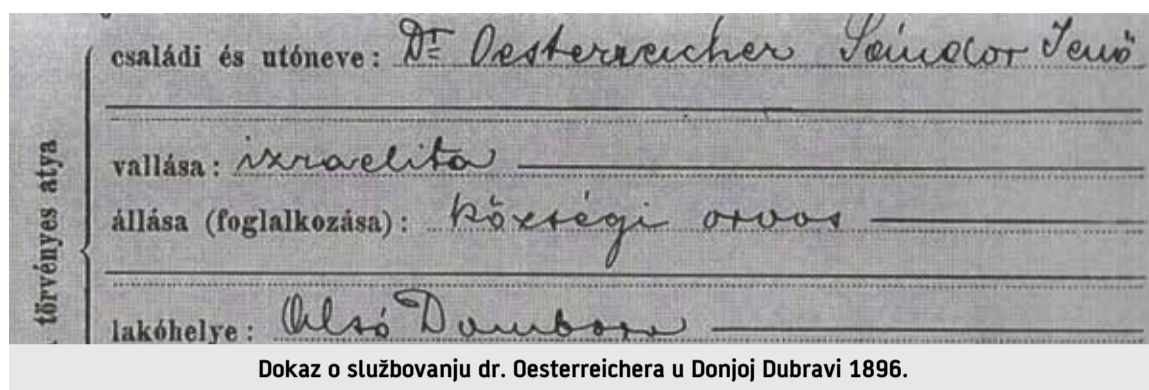 családi és utóneve: Dr Oesterreicher Sándor Jenő
vallása: izraelita
állása (foglalkozása): községi orvos
lakóhelye: Alsó Domboru
törvényes atya
Dokaz o službovanju dr. Oesterreichera u Donjoj Dubravi 1896.